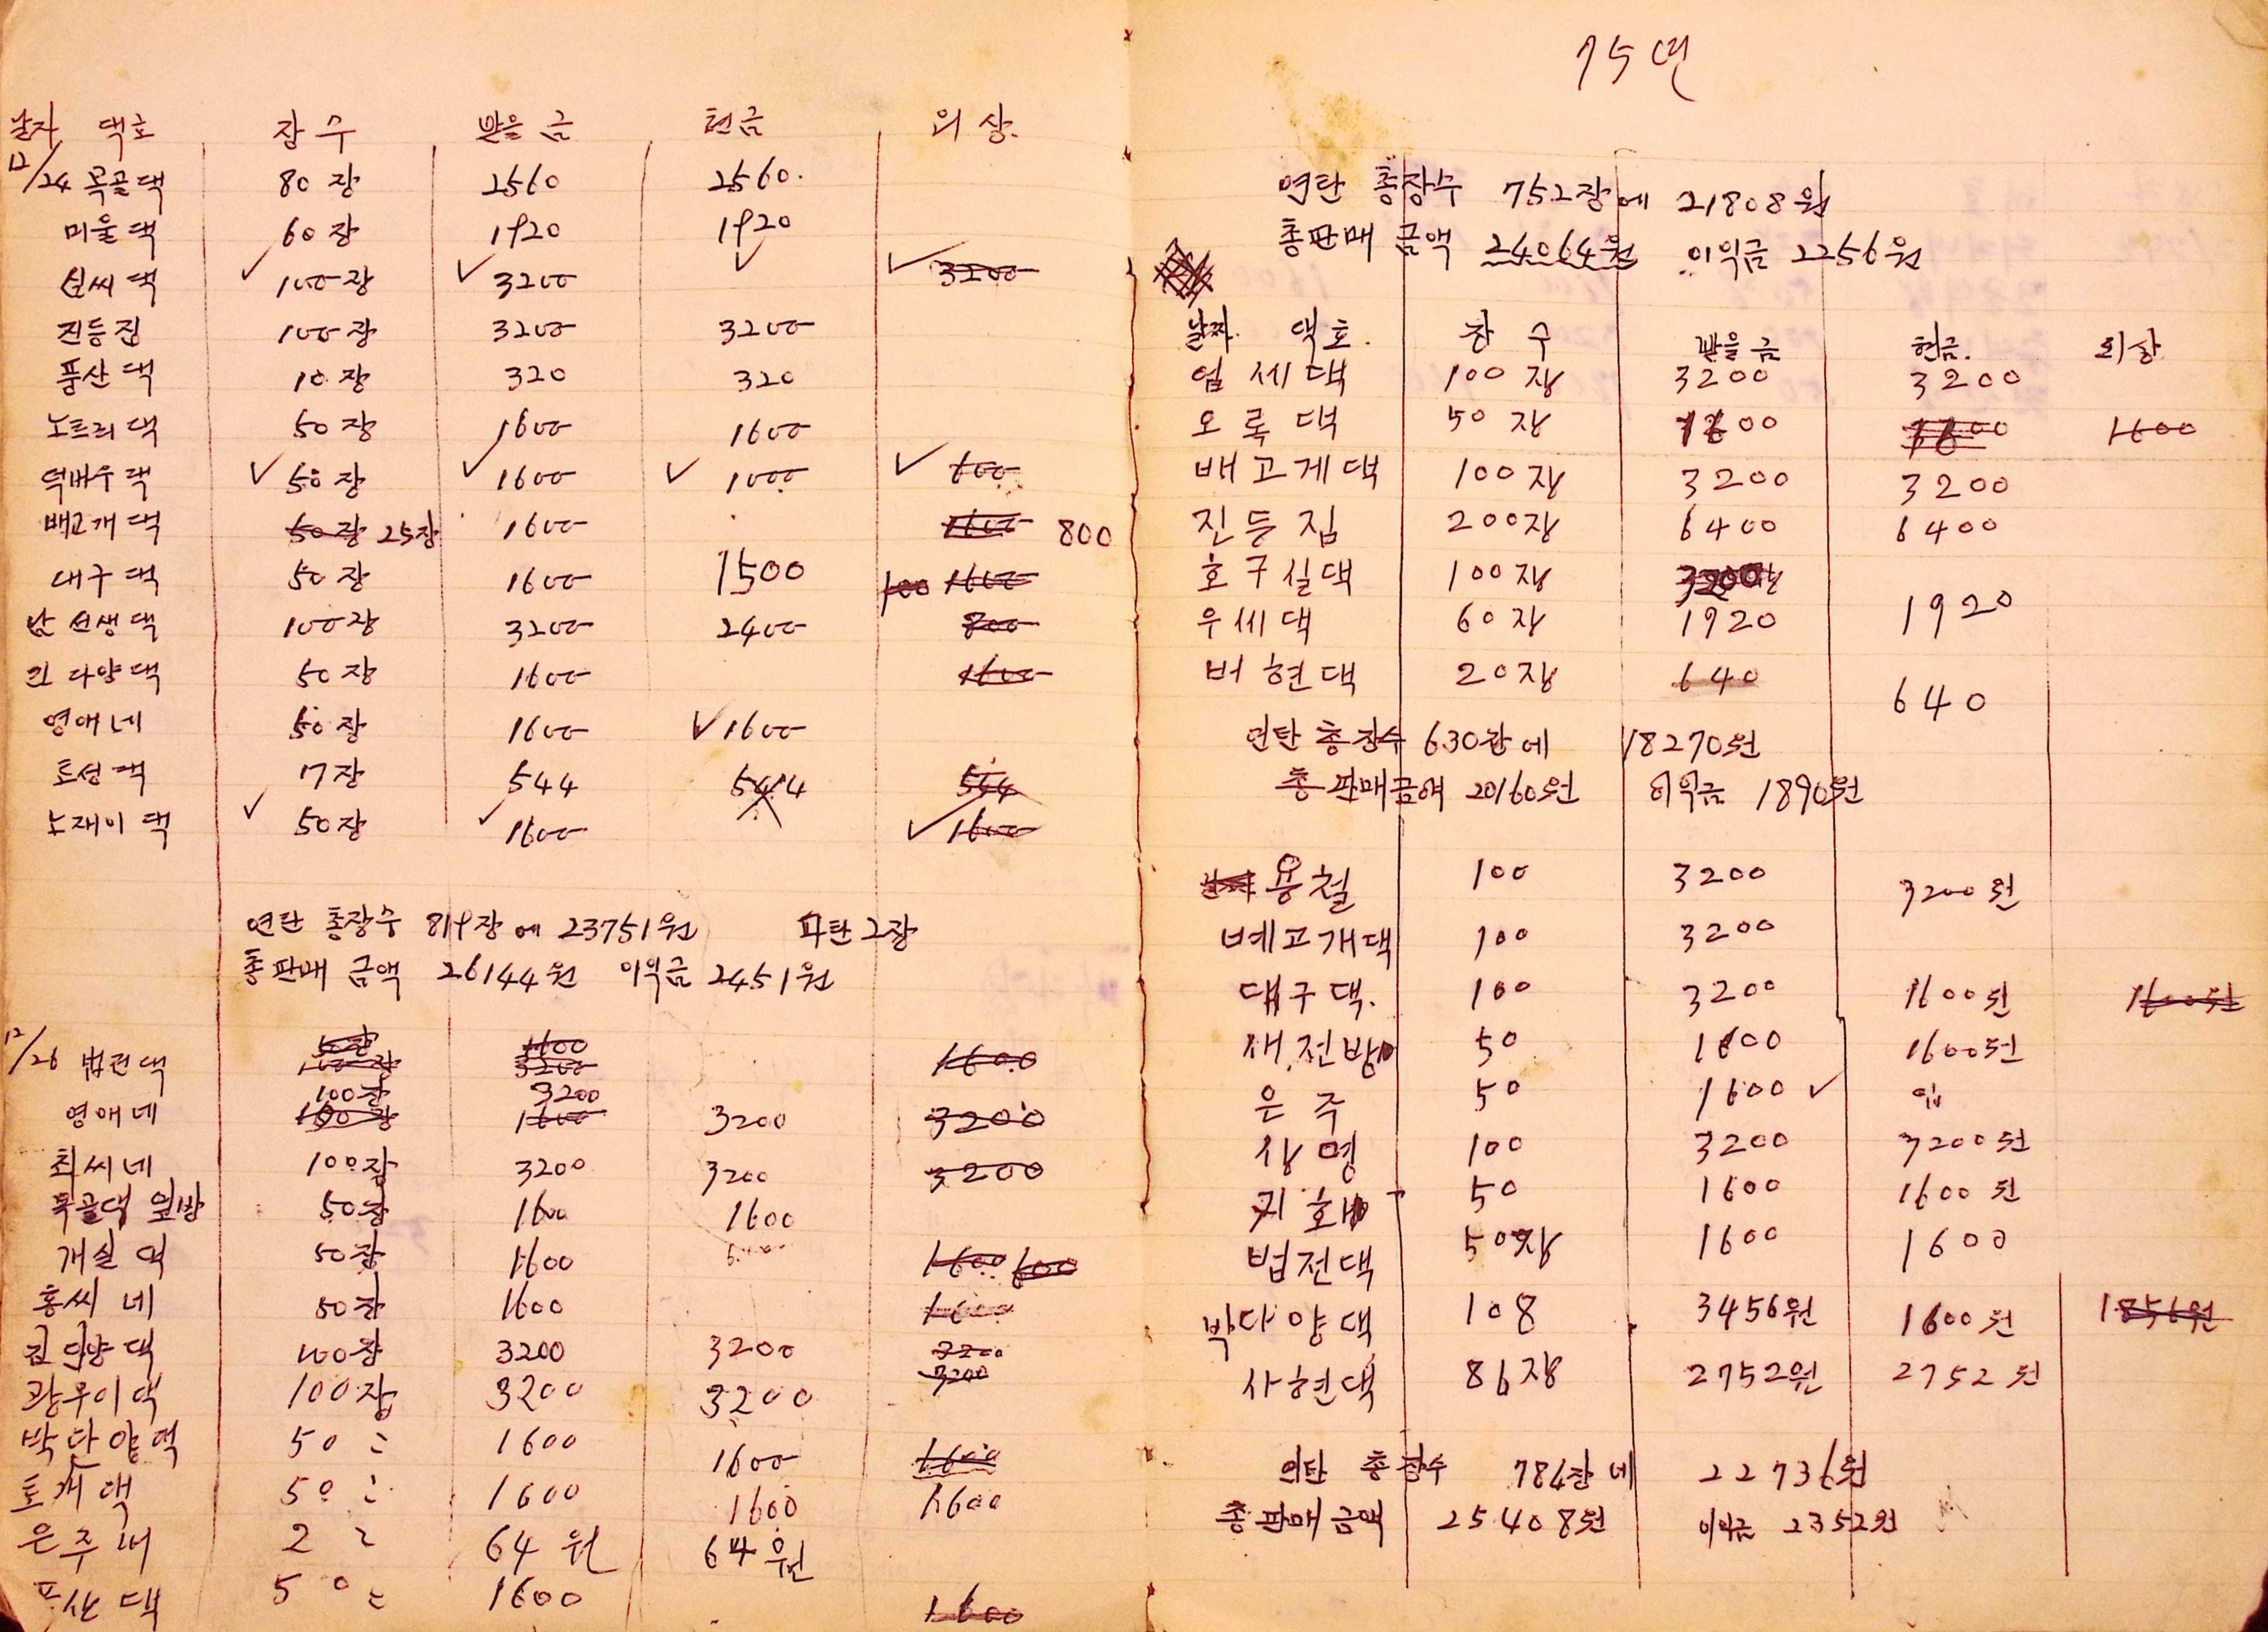 날자 댁호 장수 받을금 현금 외상.
12/24 목골댁 80장 2560 2560.
미울댁 60장 1920 1920
신씨댁 100장 3200 3200
진등집 100장 3200 3200
풍산댁 10장 320 320
노트리댁 50장 1600 1600
덕바우댁 50장 1600 1000 600
배고개댁 50장 25장 1600 1600 800
대구댁 50장 1600 1500 100 1600
남선생댁 100장 3200 2400 800
다양댁 50장 1600 1600
영애네 50장 1600 1600
토성댁 17장 544 544 544
노재이댁 50장 1600 1600
연탄 총장수 819장에 23751원 파탄 2장
총판매 금액 26144원 이익금 2451원
12/26 법전댁 50장 100장 1600 3200 1600
영애네 100장 100장 3200 1600 3200 3200
최씨네 100장 3200 3200 3200
목골댁 옆방 50장 1600 1600
개실댁 50장 1600 1600 600
홍씨네 50장 1600 1600
김다양댁 100장 3200 3200 3200
광무이댁 100장 3200 3200 3200
박단양댁 50 〃 1600 1600 1600
토개댁 50 〃 1600 1600 1600
은주네 2 〃 64원 64원
풍산댁 50 〃 1600 1600
75년
연탄 총장수 752장에 21808원
총판매 금액 24064원 이익금 2256원
날짜. 댁호. 장수 받을금 현금. 외상
엄세댁 100장 3200 3200
오록댁 50장 1600 1600 1600
배고게댁 100장 3200 3200
진등집 200장 6400 6400
호구실댁 100장 3200
우세댁 60장 1920 1920
버현댁 20장 640 640
연탄 총장수 630장에 18270원
총판매금액 20160원 이익금 1890원
용철 100 3200 3200원
베고개댁 100 3200
대구댁. 100 3200 1600원 1600원
새전방 50 1600 1600원
은주 50 1600
상명 100 3200 3200원
지호 50 1600 1600원
법전댁 50장 1600 1600
박다양댁 108 3456원 1600원 1856원
사현댁 86장 2752원 2752원
연탄 총장수 784장네 22736원
총판매금액 25408원 이익금 2352원